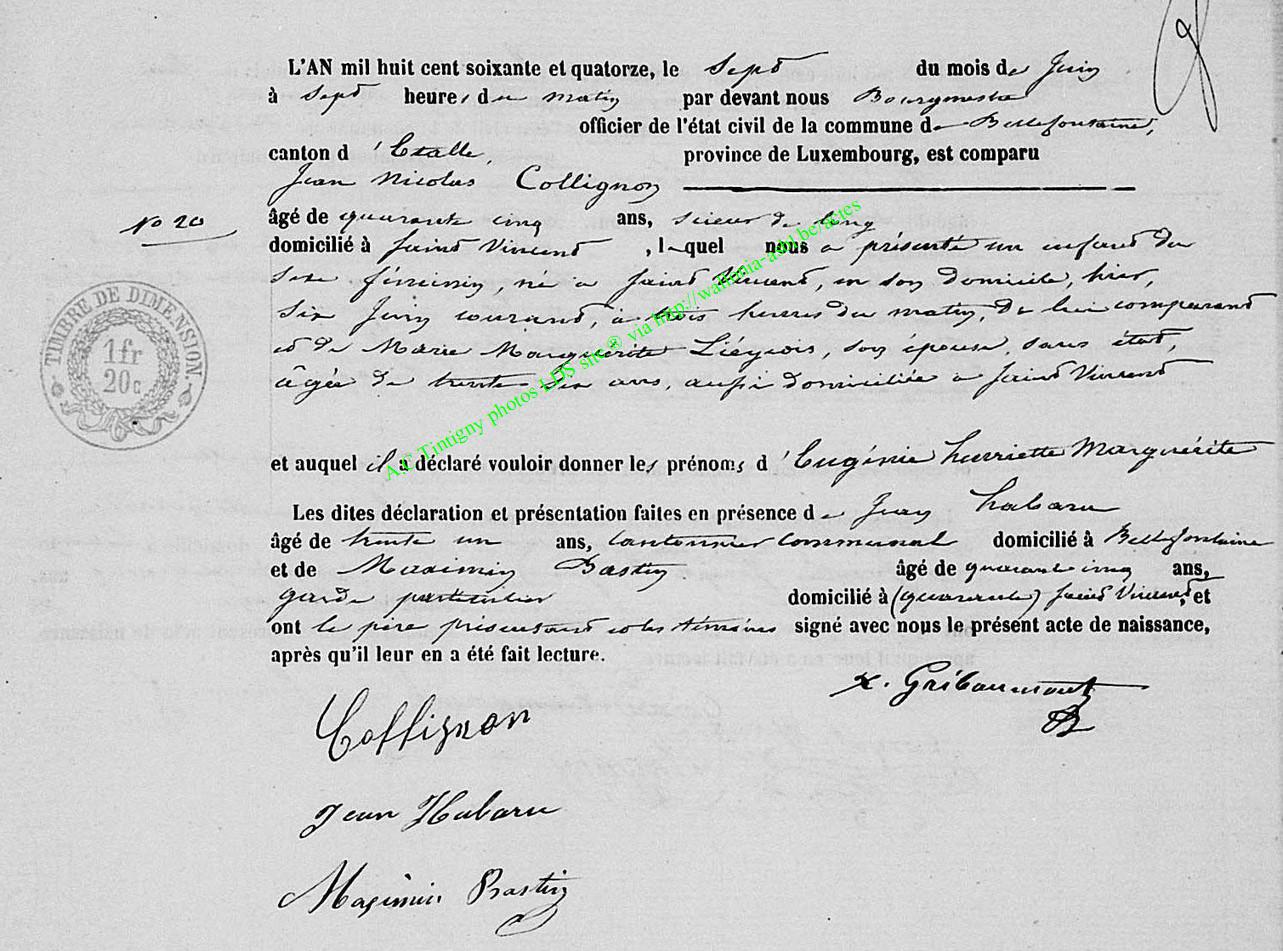 L'AN mil huit cent soixante et quatorze, le sept du mois de Juin
à sept heures du matin par devant nous Bourgmestre
officier de l'état civil de la commune de Bellefontaine,
canton d'Etalle, province de Luxembourg, est comparu
Jean Nicolas Collignon
No 20
âgé de quarante cinq ans, scieur de long
domicilié à Saint Vincent, lequel nous a présenté un enfant du
sexe féminin, né à Saint Vincent, en son domicile, hier,
six Juin courant, à trois heures du matin, de lui comparant
et de Marie Marguérite Liégeois, son épouse, sans état,
âgée de trente-six ans, aussi domiciliée à Saint Vincent
TIMBRE DE DIMENSION
1fr
20c
A.E Tintigny photos LDS site® via http://wallonia-asbl.be/actes
et auquel il a déclaré vouloir donner les prénoms d'Eugénie henriette Marguérite
Les dites déclaration et présentation faites en présence de Jean habaru
âgé de trente un ans, Cantonnier Communal domicilié à Bellefontaine
et de Maximin Bastin âgé de quarante cinq ans,
garde particulier domicilié à (quarante) Saint Vincent, et
ont le père présentant et les témoins signé avec nous le présent acte de naissance,
après qu'il leur en a été fait lecture.
Collignon
Jean Habaru
Maximin Bastin